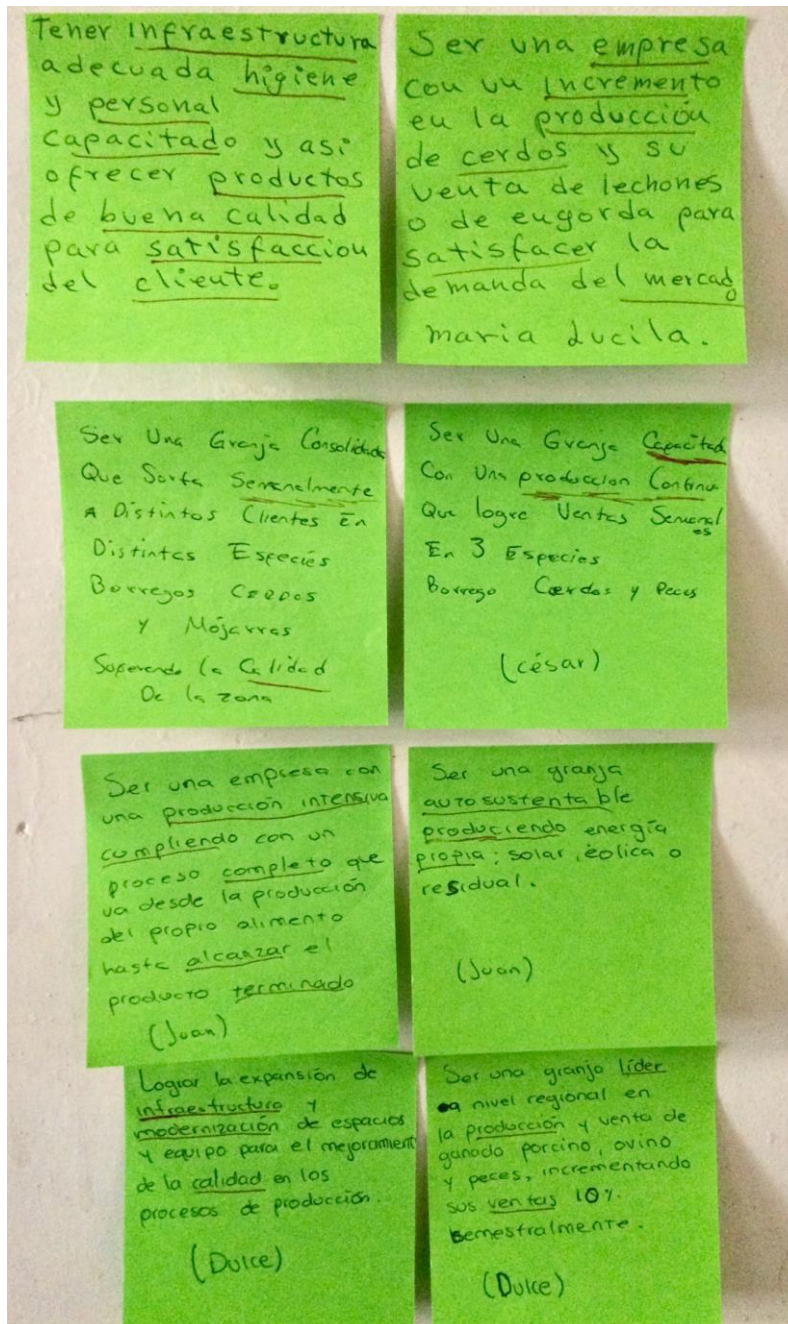 Tener infraestructura
adecuada higiene
y personal
capacitado y asi
ofrecer productos
de buena calidad
para satisfaccion
del cliente.
Ser una empresa
con un incremento
en la producción
de cerdos y su
venta de lechones
o de engorda para
satisfacer la
demanda del mercado
maria Lucila.
Ser Una Granja Consolidada
Que Surta Semanalmente
A Distintos Clientes En
Distintas Especies
Borregos Cerdos
y Mojarras
Superando la Calidad
De la zona
Ser Una Granja Capacitad
Con Una produccion Continua
Que logre Ventas Semanales
En 3 Especies
Borrego Cerdos y Peces
(césar)
Ser una empresa con
una producción intensiva
cumpliendo con un
proceso completo que
va desde la producción
del propio alimento
hasta alcanzar el
producto terminado
(Juan)
Ser una granja
autosustentable
produciendo energía
propia; solar, éolica o
residual.
(Juan)
Lograr la expansión de
infraestructura y
modernización de espacios
y equipo para el mejoramient
de la calidad en los
procesos de producción.
(Dulce)
Ser una granja líder
a nivel regional en
la producción y venta de
ganado porcino, ovino
y peces, incrementando
sus ventas 10%
semestralmente.
(Dulce)